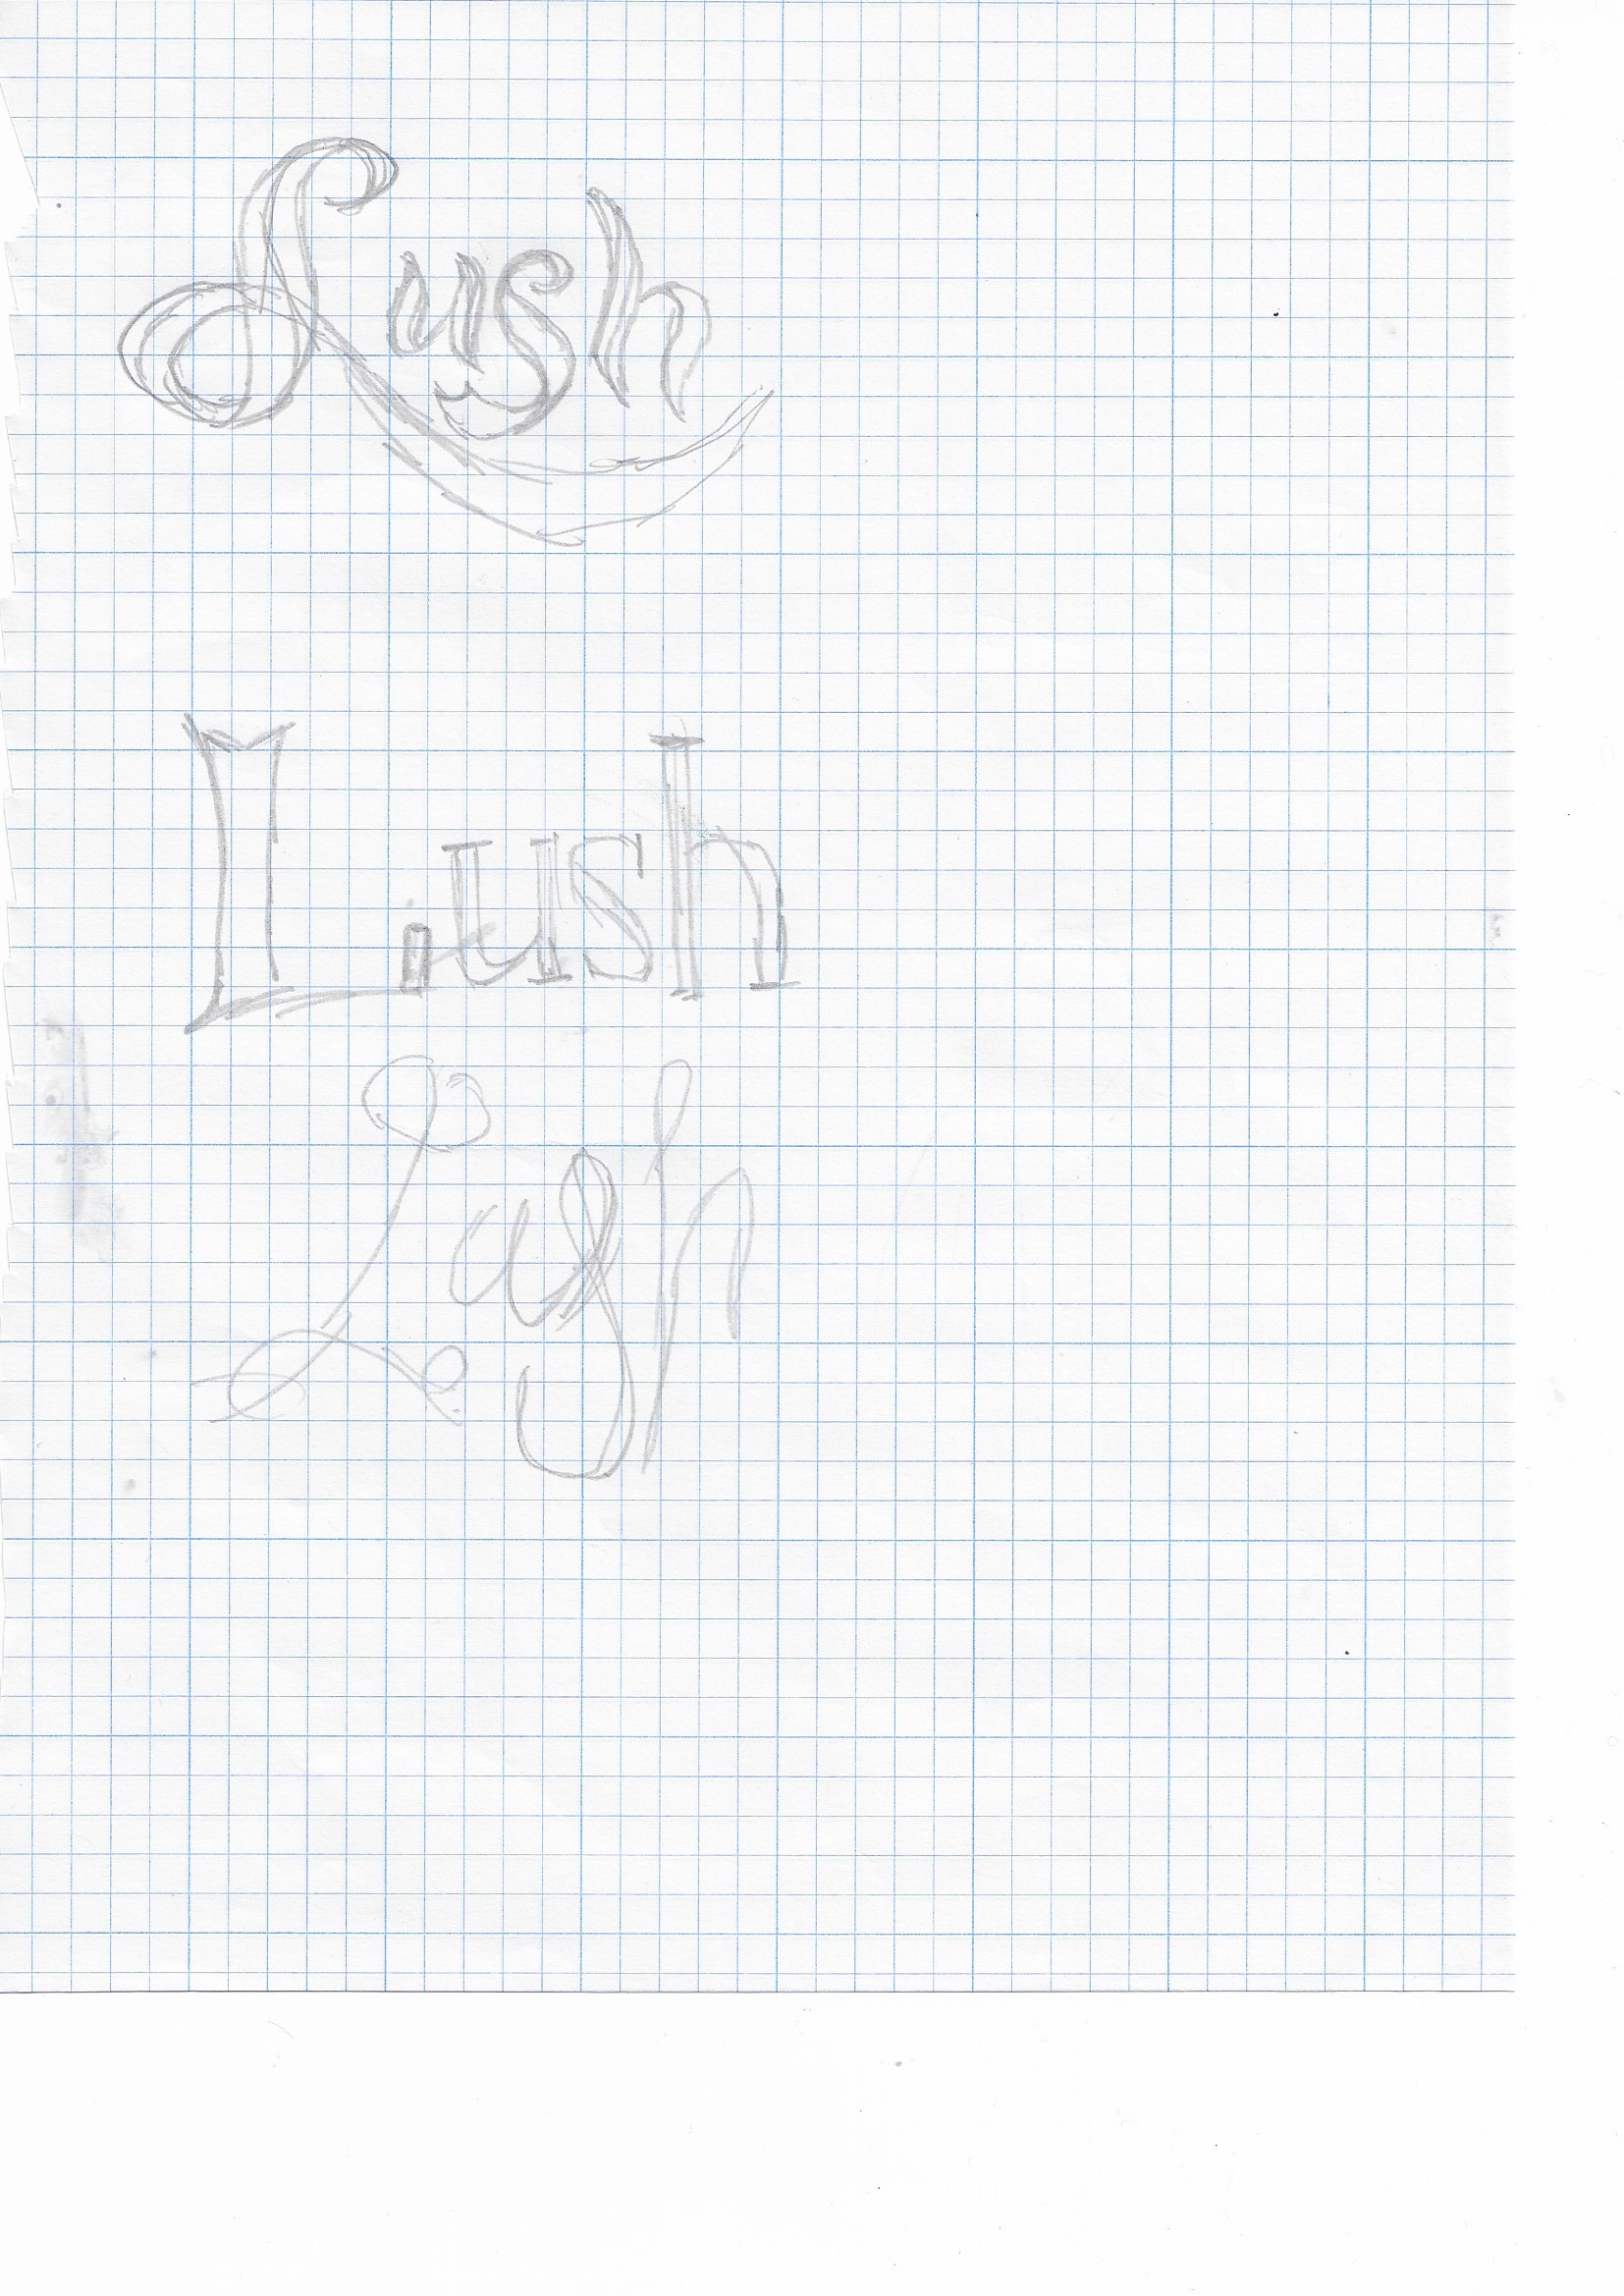 Lush
Lush
Lush